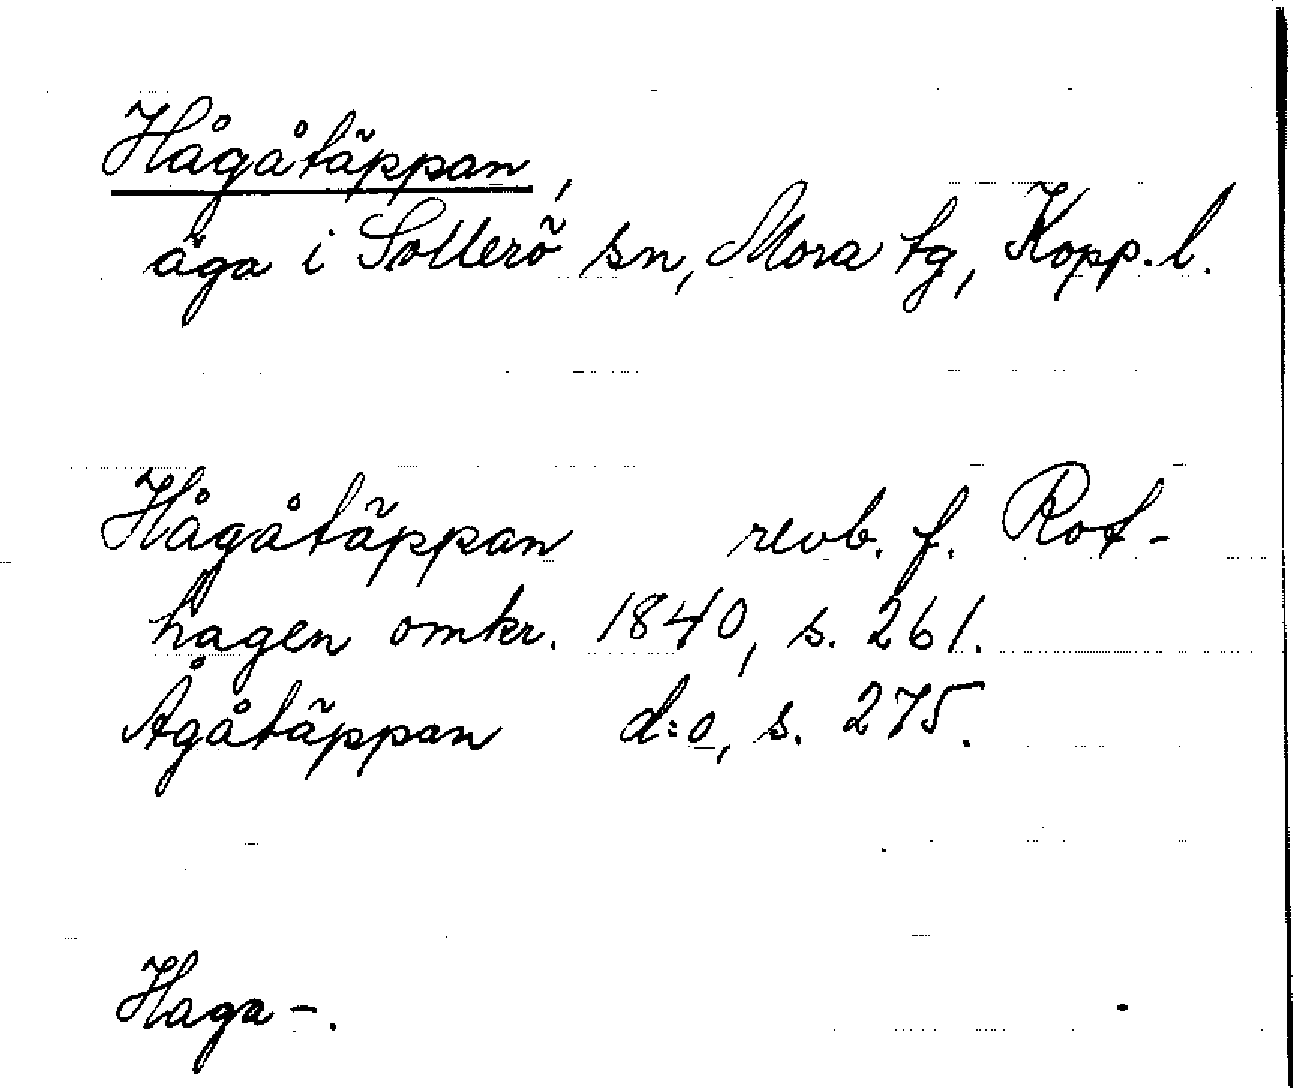 Hågåtäppan,
äga i Sollerö sn, Mora tg, Kopp. l.
Hågåtäppan revb. f. Rot-
hagen omkr. 1840, s. 261.
Ågåtäppan d:o, s. 275.
Haga-.